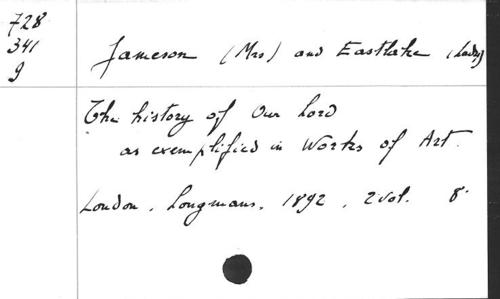 728
341
9
Jameson (Mrs) and Eastlake (Lady)
The history of Our Lord
as exemplified in Works of Art.
London, Longmans, 1892, 2 vol. 8°